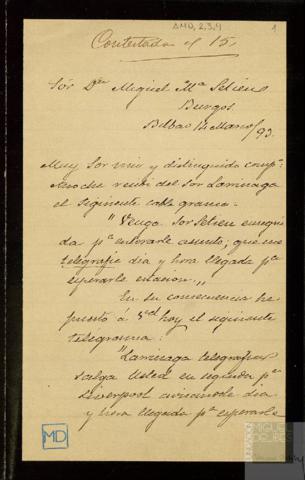 AMD, 2, 3, 4
1
Contestada el 15.
Sór Dn Miguel Ma Setien
Burgos
Bilbao 14 Marzo/93.
Muy Sor mio y distinguido comp.:
Anoche recibi del Sor Larrinaga
el siguiente cable grama.
"Venga Sor Setien enseguida
da pa enterarle asunto; que me
telegrafie dia y hora llegada pa
esperarle estacion.,,
En su consecuencia he
puesto á Vd hoy el siguiente
telegrama:
"Larrinaga telegrafia
salga Usted en seguida pa
Liverpool avisandole dia
y hora llegada pa esperarle
MD